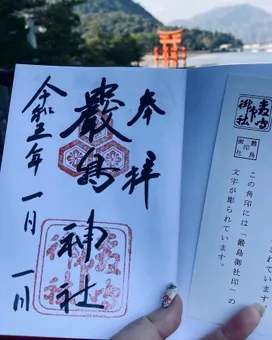 奉拝
嚴島
神社
令和三年一月一川
嚴島
御社
この角印には「嚴島御社印」の
文字が彫られています。